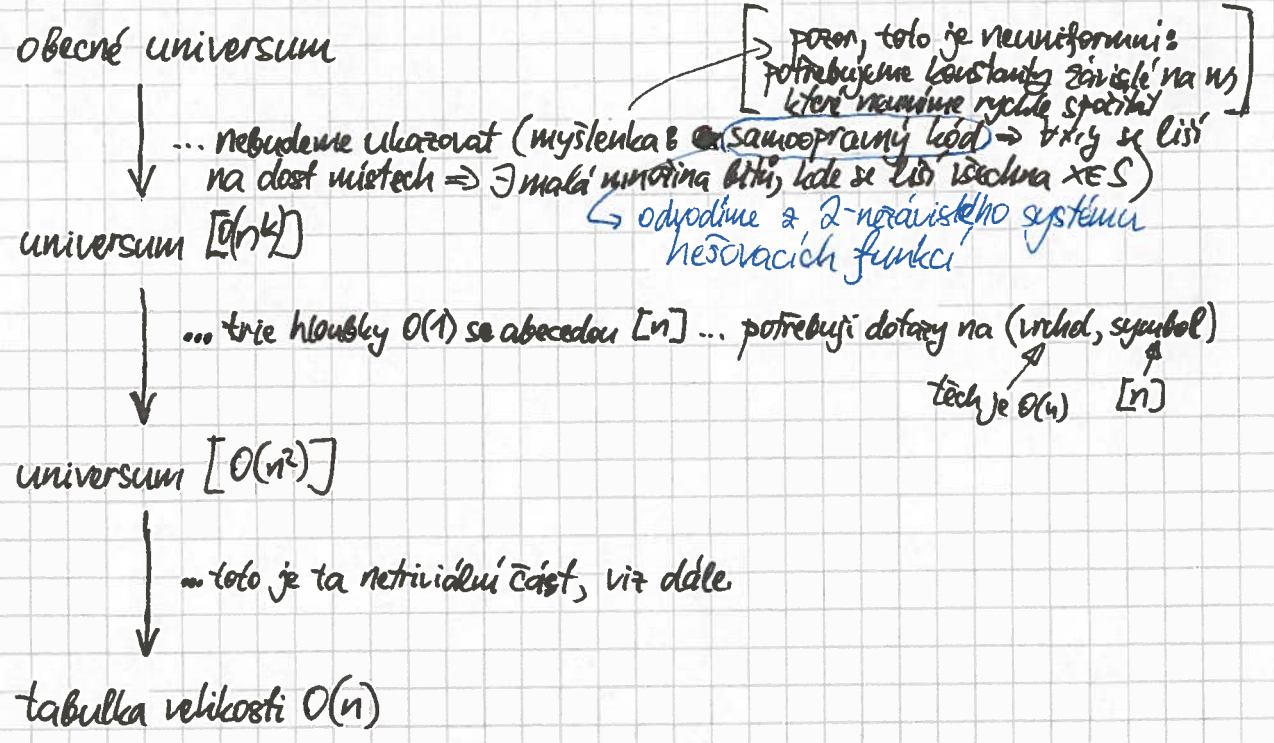 obecné universum
pozor, toto je neuniformní:
potřebujeme konstanty závislé na w,
které neumíme rychle spočítat
... nebudeme ukazovat (myšlenka: samoopravný kód ⇒ ∀x,y se liší
na dost místech ⇒ ∃ malá množina bitů, kde se liší všechna x∈S)
↳ odvodíme z 2-nezávislého systému
hešovacích funkcí
universum [O(n^k)]
... trie hloubky O(1) se abecedou [n] ... potřebuji dotazy na (vrchol, symbol)
těch je O(n) [n]
universum [O(n²)]
... toto je ta netriviální část, viz dále
tabulka velikosti O(n)